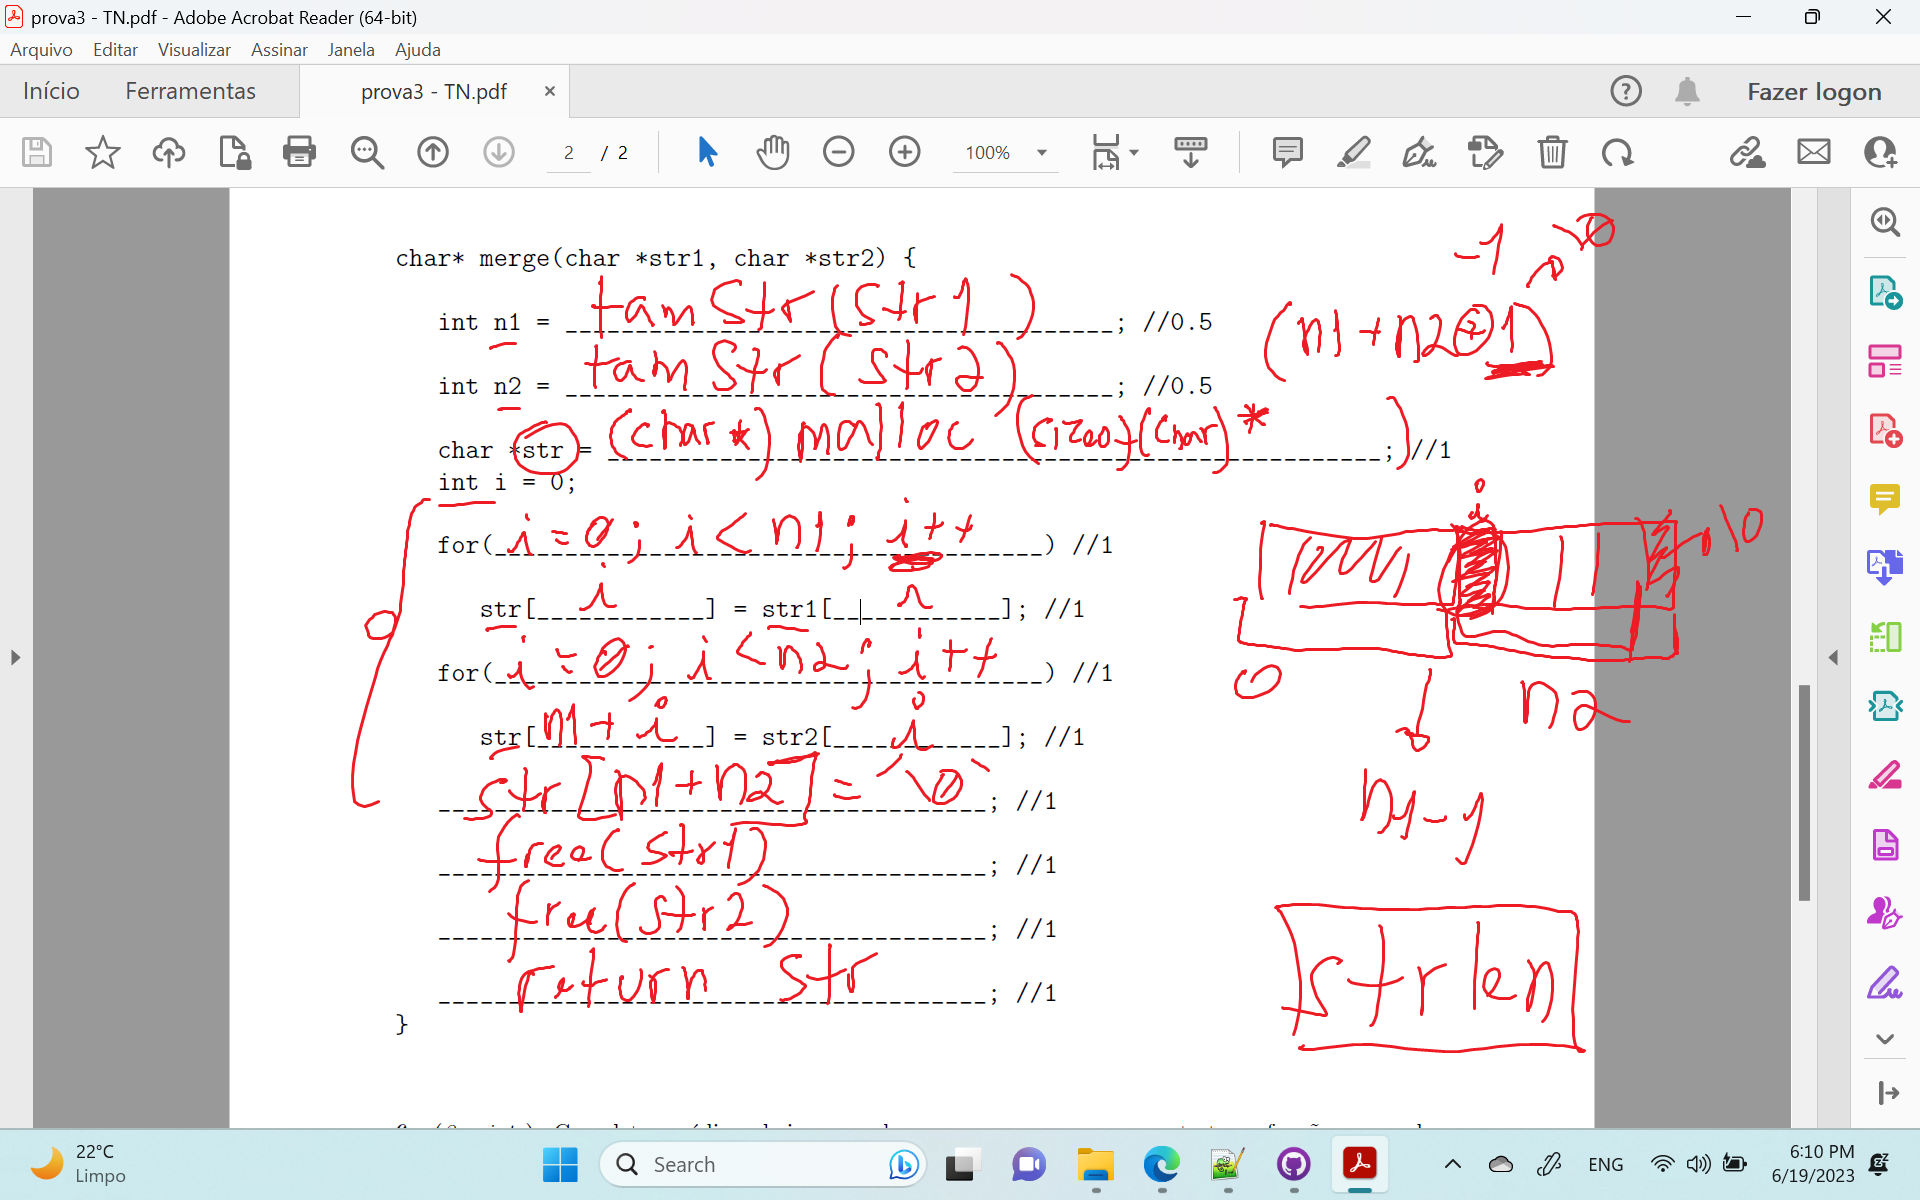 prova3 - TN.pdf - Adobe Acrobat Reader (64-bit)
Arquivo Editar Visualizar Assinar Janela Ajuda
Início Ferramentas prova3 - TN.pdf × Fazer logon
2 / 2 100%
char* merge(char *str1, char *str2) {
-1 \0
int n1 = tamStr(str1); //0.5
(n1+n2+1)
int n2 = tamStr(str2); //0.5
char *str = (char*) malloc (sizeof(char)* ); //1
int i = 0;
for(i=0; i<n1; i++) //1
i \0
str[i] = str1[i]; //1
for(i=0; i<n2; i++) //1
0 n2
str[n1+i] = str2[i]; //1
str[n1+n2] = '\0'; //1
n1-1
free(str1); //1
free(str2); //1
return str; //1
strlen
}
22°C
Limpo
Search
ENG
6:10 PM
6/19/2023